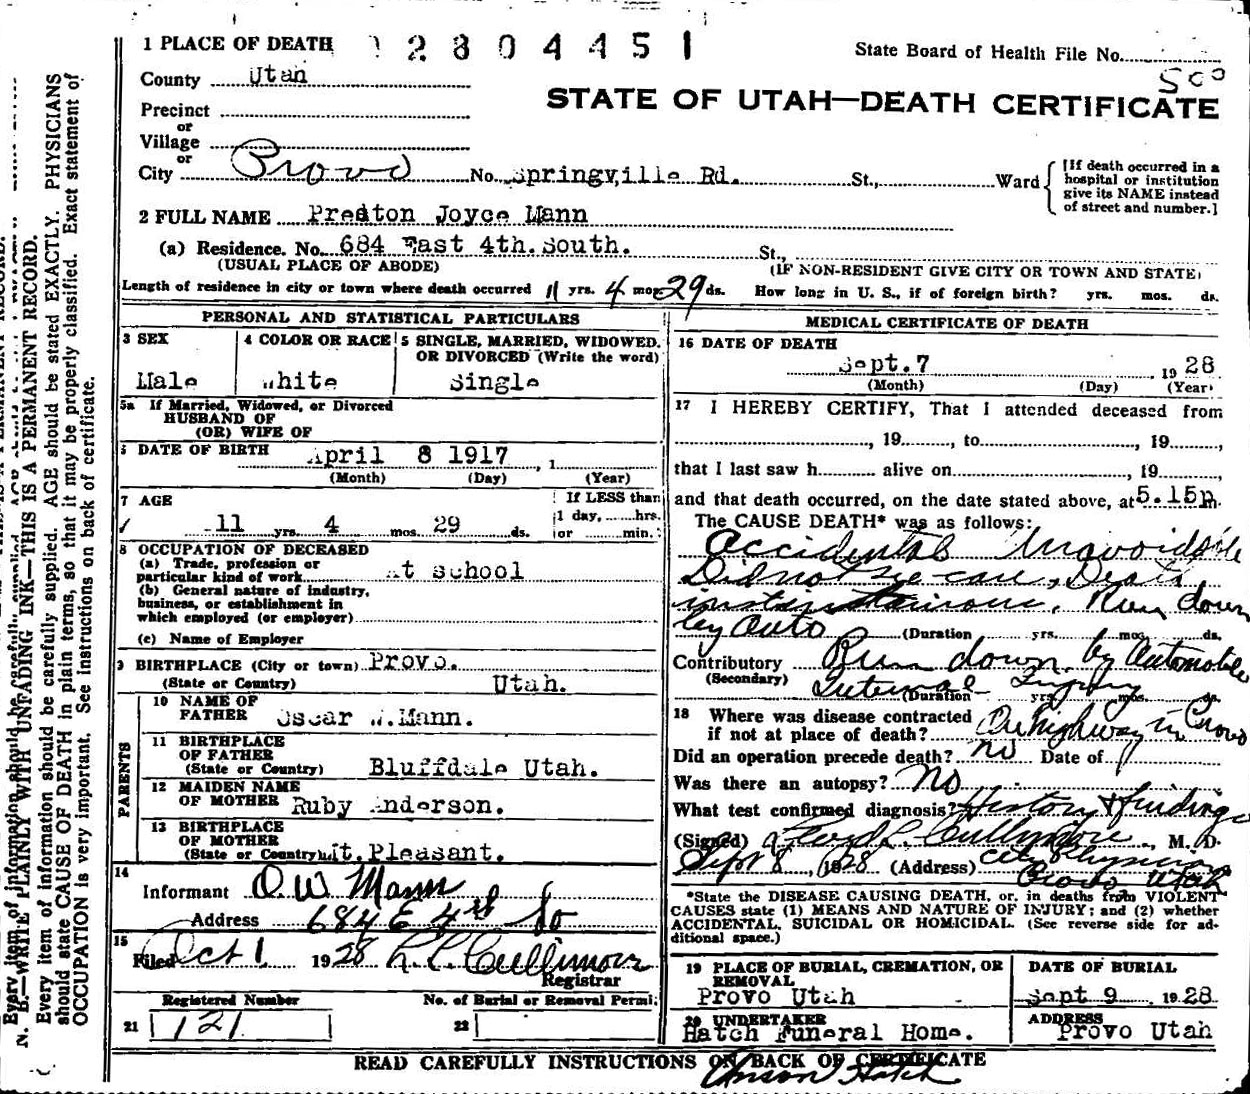 1 PLACE OF DEATH 2804451
State Board of Health File No.
500
County Utah
STATE OF UTAH—DEATH CERTIFICATE
Precinct
or
Village
or
City Provo No. Springville Rd. St., Ward
[If death occurred in a hospital or institution give its NAME instead of street and number.]
2 FULL NAME Preston Joyce Mann
(a) Residence. No. 684 East 4th. South. St.,
(USUAL PLACE OF ABODE) (IF NON-RESIDENT GIVE CITY OR TOWN AND STATE)
Length of residence in city or town where death occurred 11 yrs. 4 mos. 29 ds. How long in U. S., if of foreign birth? yrs. mos. ds.
PERSONAL AND STATISTICAL PARTICULARS
3 SEX 4 COLOR OR RACE 5 SINGLE, MARRIED, WIDOWED, OR DIVORCED (Write the word)
Male White Single
5a If Married, Widowed, or Divorced
HUSBAND OF
(OR) WIFE OF
6 DATE OF BIRTH April 8 1917 , 1
(Month) (Day) (Year)
7 AGE If LESS than
1 day, hrs.
11 yrs. 4 mos. 29 ds. or min.
8 OCCUPATION OF DECEASED
(a) Trade, profession or
particular kind of work At School
(b) General nature of industry,
business, or establishment in
which employed (or employer)
(c) Name of Employer
9 BIRTHPLACE (City or town) Provo.
(State or Country) Utah.
PARENTS
10 NAME OF
FATHER Oscar W. Mann.
11 BIRTHPLACE
OF FATHER
(State or Country) Bluffdale Utah.
12 MAIDEN NAME
OF MOTHER Ruby Anderson.
13 BIRTHPLACE
OF MOTHER
(State or Country) Mt. Pleasant.
14
Informant O. W. Mann
Address 684 E 4th So
15
Filed Oct 1 1928 L. C. Cullimore
Registrar
Registered Number No. of Burial or Removal Permit
21 121 22
MEDICAL CERTIFICATE OF DEATH
16 DATE OF DEATH
Sept. 7 , 19 28
(Month) (Day) (Year)
17 I HEREBY CERTIFY, That I attended deceased from
, 19 , to , 19 ,
that I last saw h alive on , 19
and that death occurred, on the date stated above, at 5.15p m.
The CAUSE DEATH* was as follows:
Accidental Unavoidable
Did not see car, Death
instantaneous, Run down
by Auto (Duration yrs. mos. ds.
Contributory Run down by Automobile
(Secondary) Internal Injury (Duration yrs. mos. ds.
18 Where was disease contracted
if not at place of death? On highway in Provo
Did an operation precede death? no Date of
Was there an autopsy? No
What test confirmed diagnosis? History & findings
(Signed) Lloyd L. Cullimore, M. D.
Sept 8, 1928 (Address) City Physician
Provo Utah
*State the DISEASE CAUSING DEATH, or, in deaths from VIOLENT
CAUSES state (1) MEANS AND NATURE OF INJURY; and (2) whether
ACCIDENTAL, SUICIDAL OR HOMICIDAL. (See reverse side for ad-
ditional space.)
19 PLACE OF BURIAL, CREMATION, OR REMOVAL DATE OF BURIAL
Provo Utah Sept 9 19 28
20 UNDERTAKER ADDRESS
Hatch Funeral Home. Provo Utah
READ CAREFULLY INSTRUCTIONS ON BACK OF CERTIFICATE
Anson Hatch
N. B.—WRITE PLAINLY WITH UNFADING INK—THIS IS A PERMANENT RECORD.
Every item of information should be carefully supplied. AGE should be stated EXACTLY. PHYSICIANS
should state CAUSE OF DEATH in plain terms, so that it may be properly classified. Exact statement of
OCCUPATION is very important. See instructions on back of certificate.